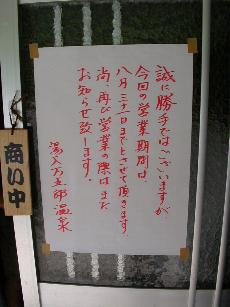 誠に勝手ではございますが
今回の営業期間は、
八月三十一日までとさせて頂きます。
尚、再び営業の際はまた
お知らせ致します。
湯入万五郎温泉
商い中